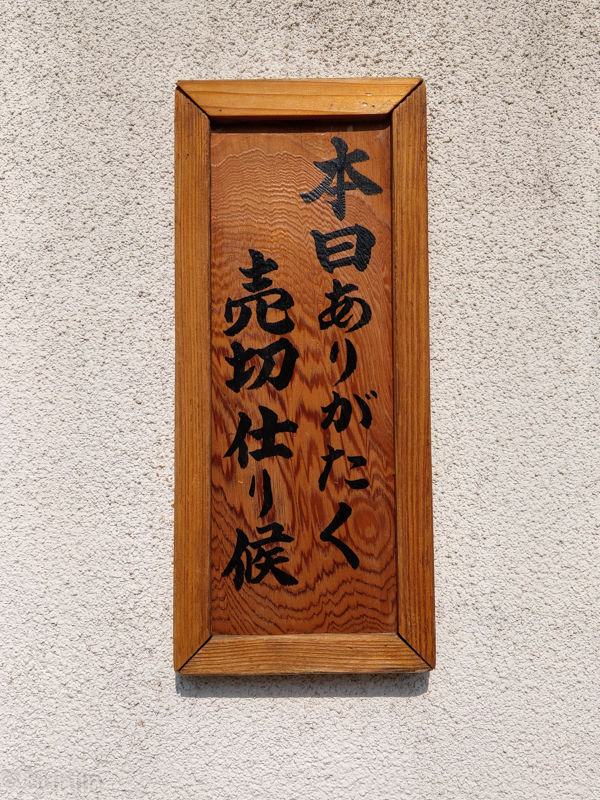 本日ありがたく
売切仕り候